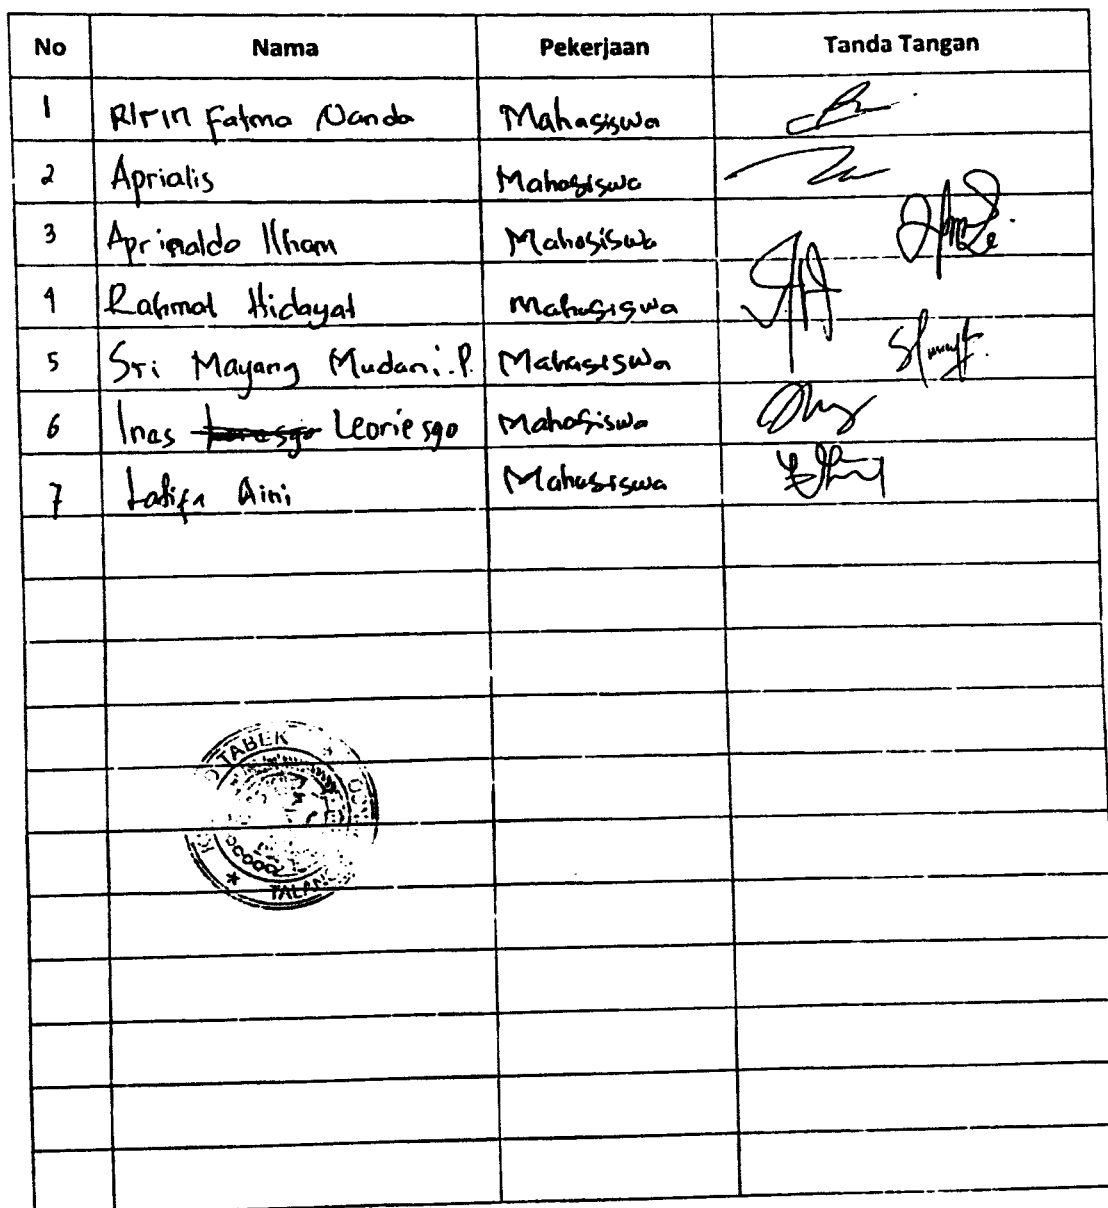 No Nama Pekerjaan Tanda Tangan
1 Ririn Fatma Nanda Mahasiswa
2 Aprialis Mahasiswa
3 Aprinaldo Ilham Mahasiswa
4 Rahmat Hidayat Mahasiswa
5 Sri Mayang Mudani.P. Mahasiswa
6 Inas Leoriesgo Mahasiswa
7 Latifa Aini Mahasiswa
TABEK
TALANG